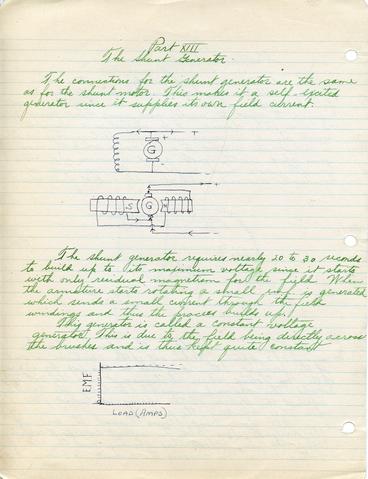 Part XIII
The Shunt Generator.
The connections for the shunt generator are the same
as for the shunt motor. This makes it a self-excited
generator since it supplies its own field current.
- +
G
+
-
-
S G N
+
-
The shunt generator requires nearly 20 to 30 seconds
to build up to its maximum voltage since it starts
with only residual magnetism for the field. When
the armature starts rotating a small emf is generated
which sends a small current through the field
windings and thus the process builds up.
This generator is called a constant voltage
generator. This is due to the field being directly across
the brushes and is thus kept quite constant
EMF
LOAD (AMPS)